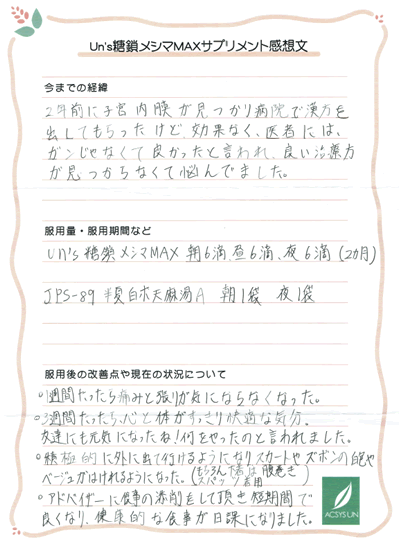 Un's糖鎖メシマMAXサプリメント感想文
今までの経緯
2年前に子宮内膜が見つかり病院で漢方を
出してもらったけど、効果なく、医者には、
ガンじゃなくて良かったと言われ、良い治療方
が見つからなくて悩んでました。
服用量・服用期間など
Un's 糖鎖メシマMAX 朝6滴、昼6滴、夜6滴 (2カ月)
JPS-89 半夏白朮天麻湯A 朝1袋 夜1袋
服用後の改善点や現在の状況について
○1週間たったら痛みと張りが気にならなくなった。
○3週間たったら、心と体がすっきり快適な気分、
友達にも元気になったね!何をやったのと言われました。
○積極的に外に出て行けるようになりスカートやズボンの白色や
ベージュがはけるようになった。(もちろん下着は腹巻き
スパッツ着用
○アドバイザーに食事の添削をして頂き短期間で
良くなり、健康的な食事が日課になりました。
ACSYS UN